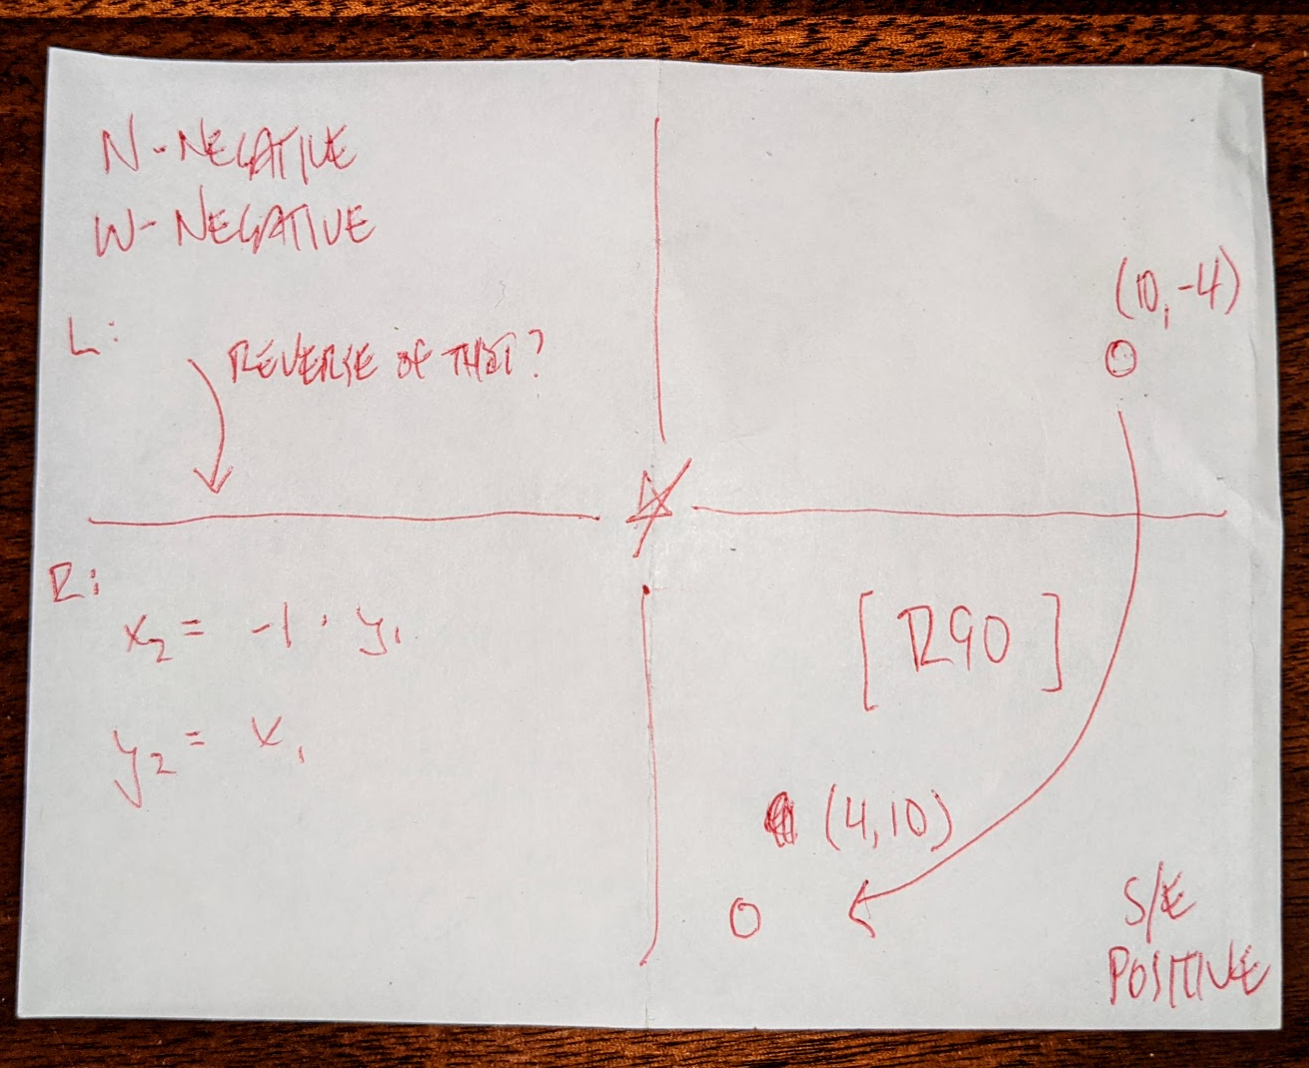 N-NEGATIVE
W-NEGATIVE
L:
REVERSE OF THAT?
(10,-4)
R:
x₂ = -1 · y₁
y₂ = x₁
[R90]
(4,10)
S/E
POSITIVE